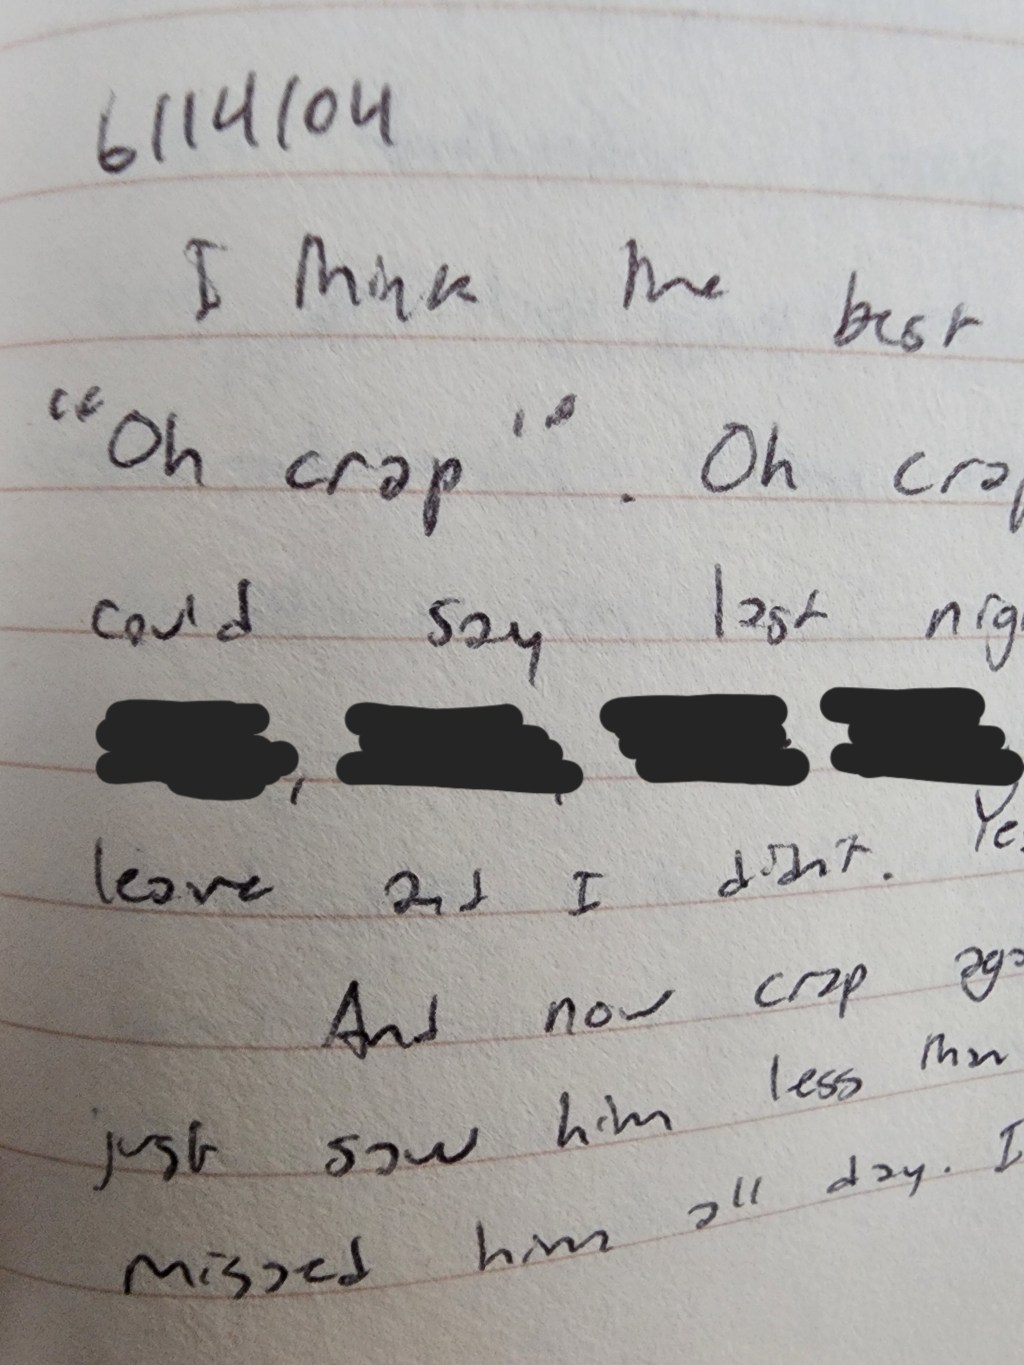 6/14/04
I think the best
"Oh crap". Oh crap
could say last nig
, ,
leave and I didn't. Yes
And now crap aga
just saw him less than
missed him all day. I